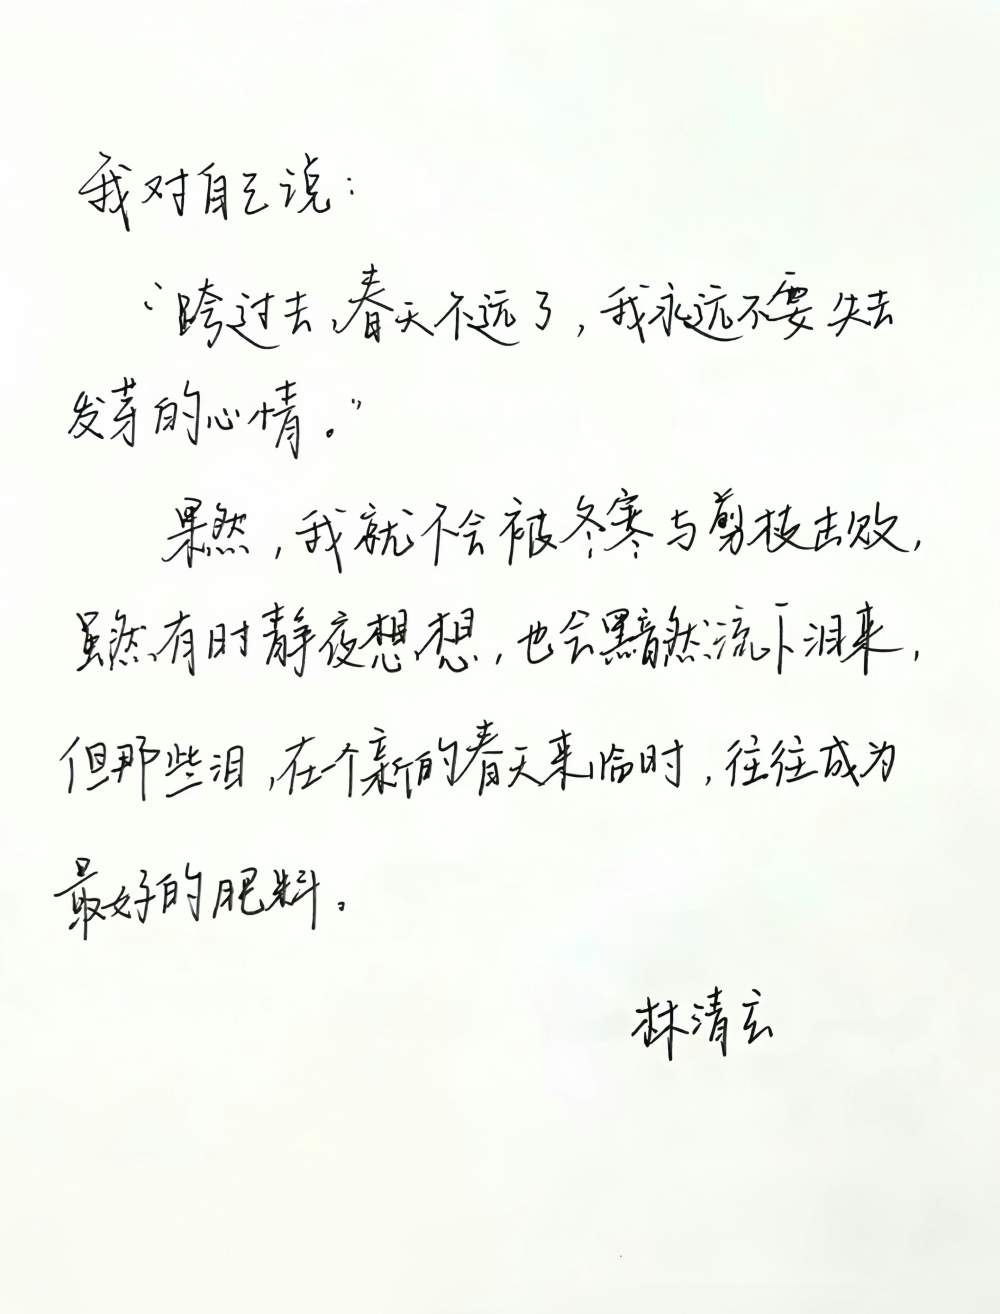 我对自己说：
“跨过去，春天不远了，我永远不要失去
发芽的心情。”
果然，我就不会被冬寒与剪枝击败，
虽然有时静夜想想，也会黯然流下泪来，
但那些泪，在一个新的春天来临时，往往成为
最好的肥料。
林清玄